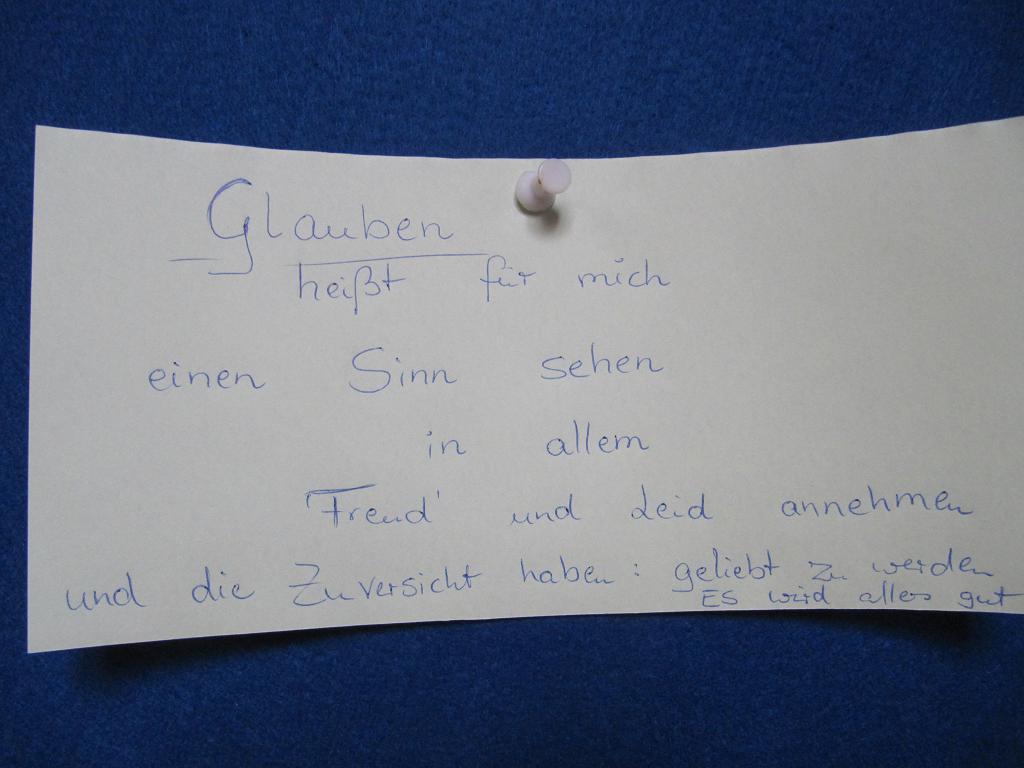 Glauben
heißt für mich
einen Sinn sehen
in allem
'Freud' und Leid annehmen
und die Zuversicht haben: geliebt zu werden
ES wird alles gut